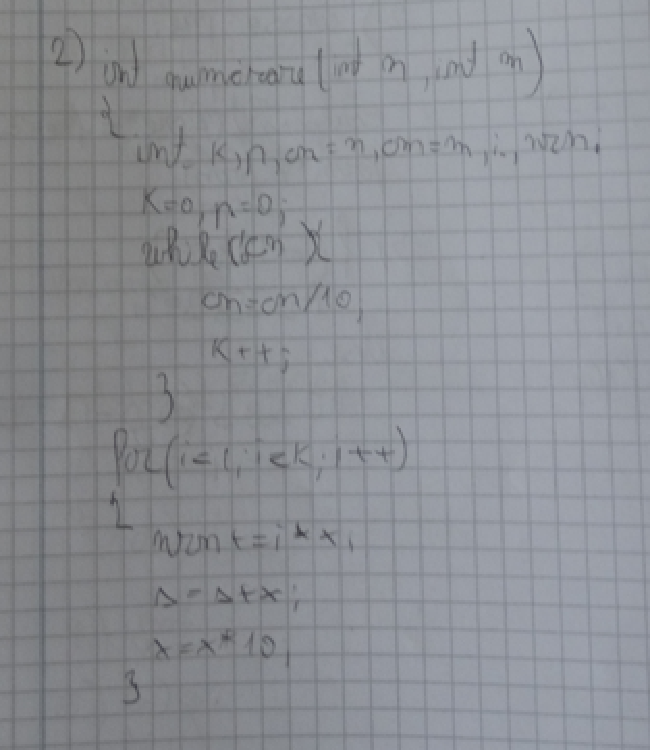 2) int numerare(int n, int m)
{
int k, p, cn = n, cm = m, i, nrzn;
k=0, p=0;
while (cn){
cn=cn/10;
k++;
}
for(i=1; i<k; i++)
{
nrzn+=i*x;
s=s+x;
x=x*10;
}